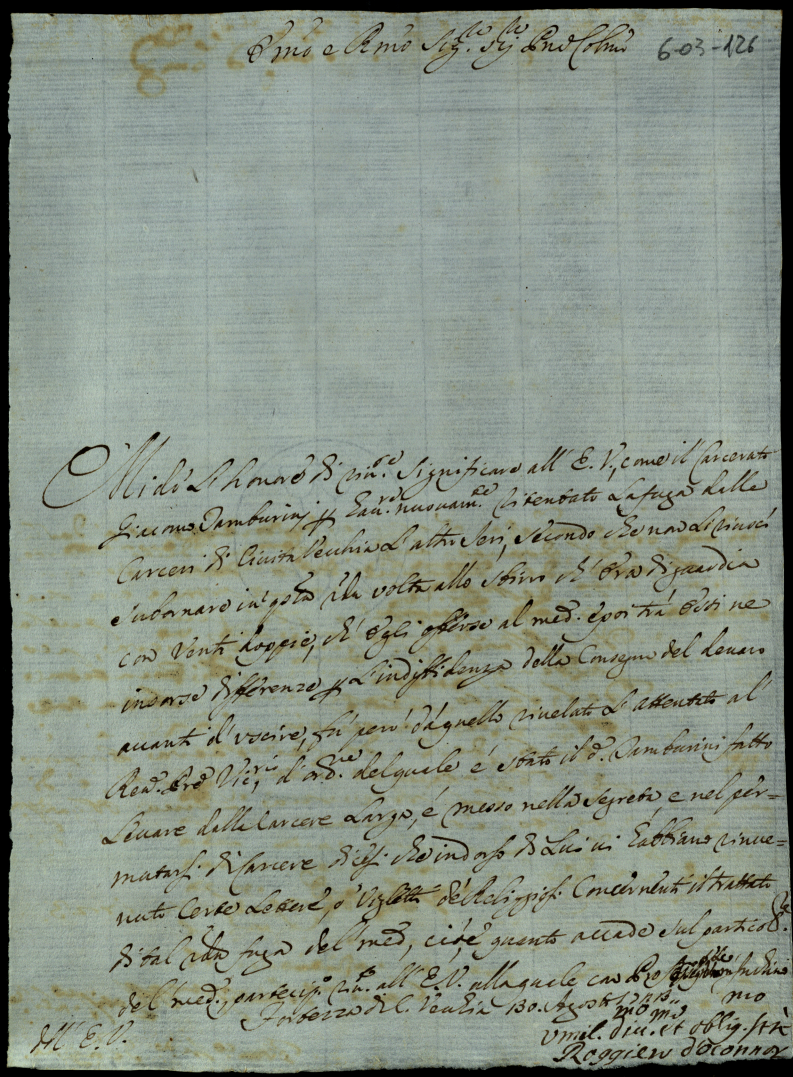 Emo e Rmo Sig.re Sig.re Pne Colmo
6-03-126
Mi dò L'honore di significare all' E. V., come il Carcerato
Giacomo Tamburinj nuovam.te ritentato La fuga dalle
Carceri di Civita Vecchia L'altra Seri, secondo che non Li riuscì
subornare in volta allo sbirro ch' era di guardia
con venti doppie, ch' Egli offerse al med. e poi trà Essi ne
insorse differenze L'indiffidenza della Consegna del denaro
avanti d'uscire, fù però dà quello rivelato L'attentato al
Vic.rio, d'ord.ne del quale è stato il d. Tamburini fatto
Levare dalle Carcere Larga, è messo nella Segreta e nel per=
mutarsi di Carcere dicesi che indosso di Lui vi habbiano rinve=
nuto Certe Lettere, ò Viglietti de Religiosi Concernenti il trattato
di tal fuga del med., ciò è quanto accade sul particol.re
del med., partecip. all' E. V. alla quale con
Fortezza di C. Vecchia 30. Agosto
Dell' E. V.
Vmil. div. et oblig. Ser
Roggiero d'oconnor